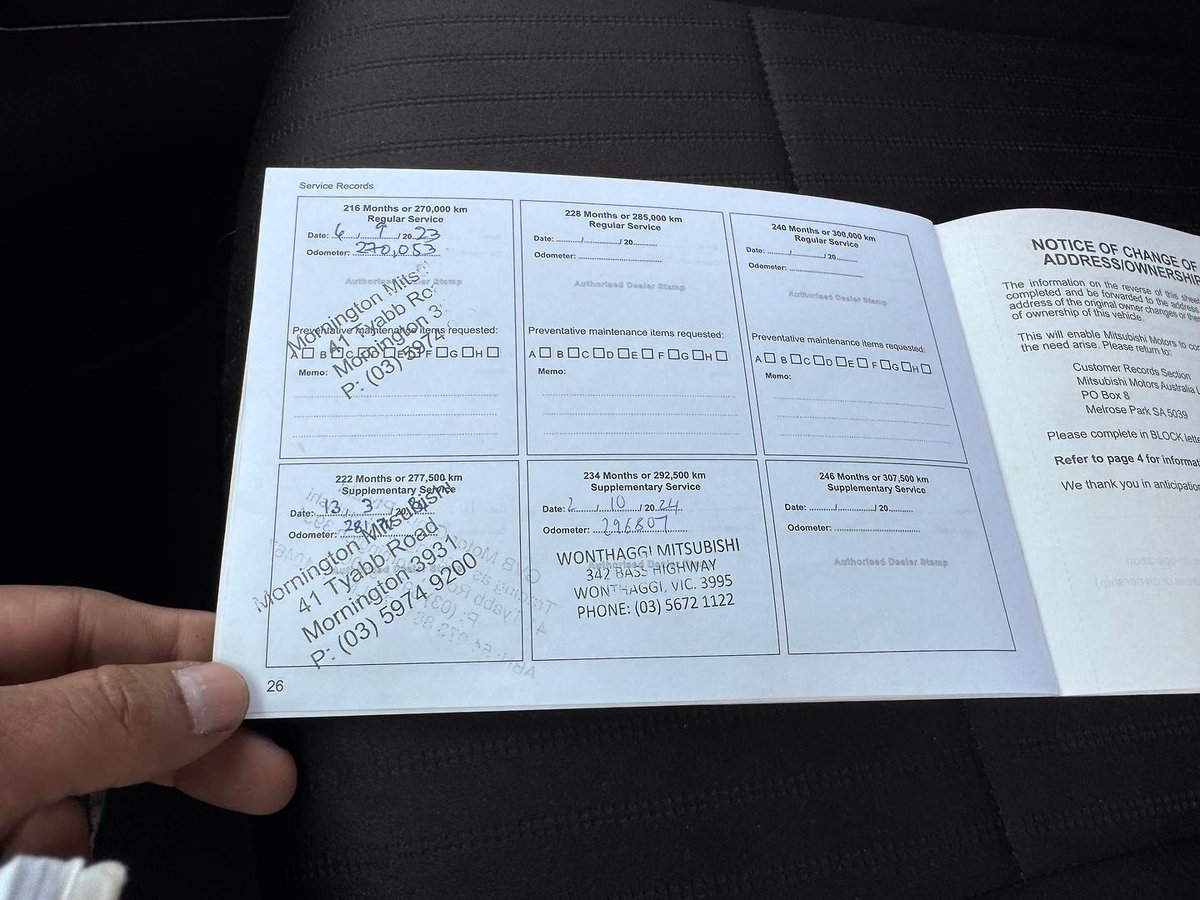 Service Records
216 Months or 270,000 km
Regular Service
Date: 6 / 9 / 20 23
Odometer: 270,053
Authorised Dealer Stamp
Mornington Mits
41 Tyabb Ro
Mornington 3
P: (03) 5974
Preventative maintenance items requested:
A B C D E F G H
Memo:
228 Months or 285,000 km
Regular Service
Date: / / 20
Odometer:
Authorised Dealer Stamp
Preventative maintenance items requested:
A B C D E F G H
Memo:
240 Months or 300,000 km
Regular Service
Date: / / 20
Odometer:
Authorised Dealer Stamp
Preventative maintenance items requested:
A B C D E F G H
Memo:
222 Months or 277,500 km
Supplementary Service
Date: 13 / 3 / 20
Odometer:
Mornington Mitsubishi
41 Tyabb Road
Mornington 3931
P: (03) 5974 9200
234 Months or 292,500 km
Supplementary Service
Date: 2 / 10 / 20 24
Odometer: 296807
Authorised Dealer Stamp
WONTHAGGI MITSUBISHI
342 BASS HIGHWAY
WONTHAGGI, VIC. 3995
PHONE: (03) 5672 1122
246 Months or 307,500 km
Supplementary Service
Date: / / 20
Odometer:
Authorised Dealer Stamp
26
NOTICE OF CHANGE OF
ADDRESS/OWNERSHIP
The information on the reverse of this
completed and be forwarded to the address
address of the original owner changes or
of ownership of this vehicle.
This will enable Mitsubishi Motors to
the need arise. Please return to:
Customer Records Section
Mitsubishi Motors Australia
PO Box 8
Melrose Park SA 5039
Please complete in BLOCK
Refer to page 4 for
We thank you in anticipation